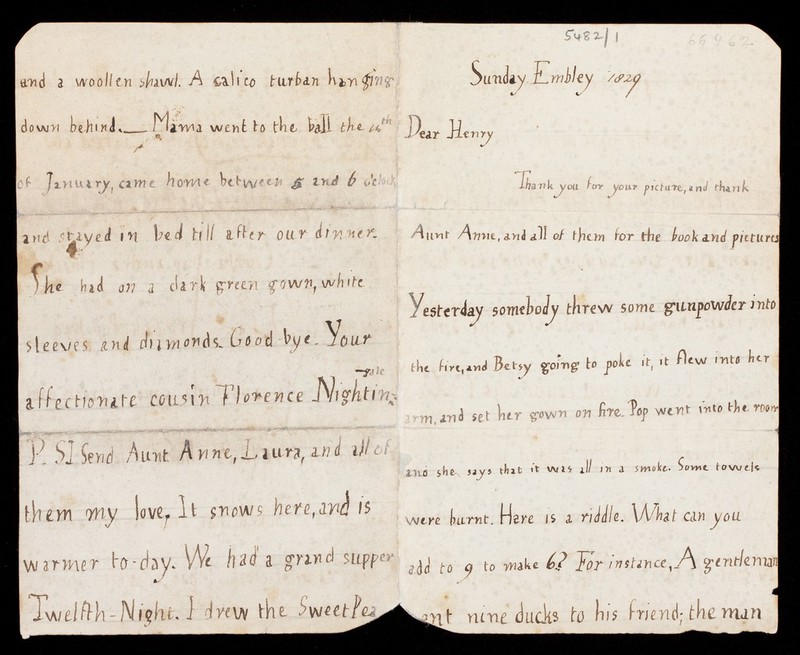 5482/1
66962
Sunday Embley 1829
Dear Henry
Thank you for your picture, and thank
Aunt Anne, and all of them for the book and pictures
Yesterday somebody threw some gunpowder into
the fire, and Betsy going to poke it, it flew into her
arm, and set her gown on fire. Pop went into the room
and she says that it was all in a smoke. Some towels
were burnt. Here is a riddle. What can you
add to 9 to make 6? For instance, A gentleman
ent nine ducks to his friend; the man
and a woollen shawl. A calico turban hanging
down behind.— Mama went to the ball the th
of January, came home between 5 and 6 o'clock
and stayed in bed till after our dinner.
She had on a dark green gown, white
sleeves and diamonds. Good bye. Your
affectionate cousin Florence Nightin-
-gale
P. S I Send Aunt Anne, Laura, and all of
them my love, It snows here, and is
warmer to-day. We had a grand supper
Twelfth-Night. I drew the Sweet Pea